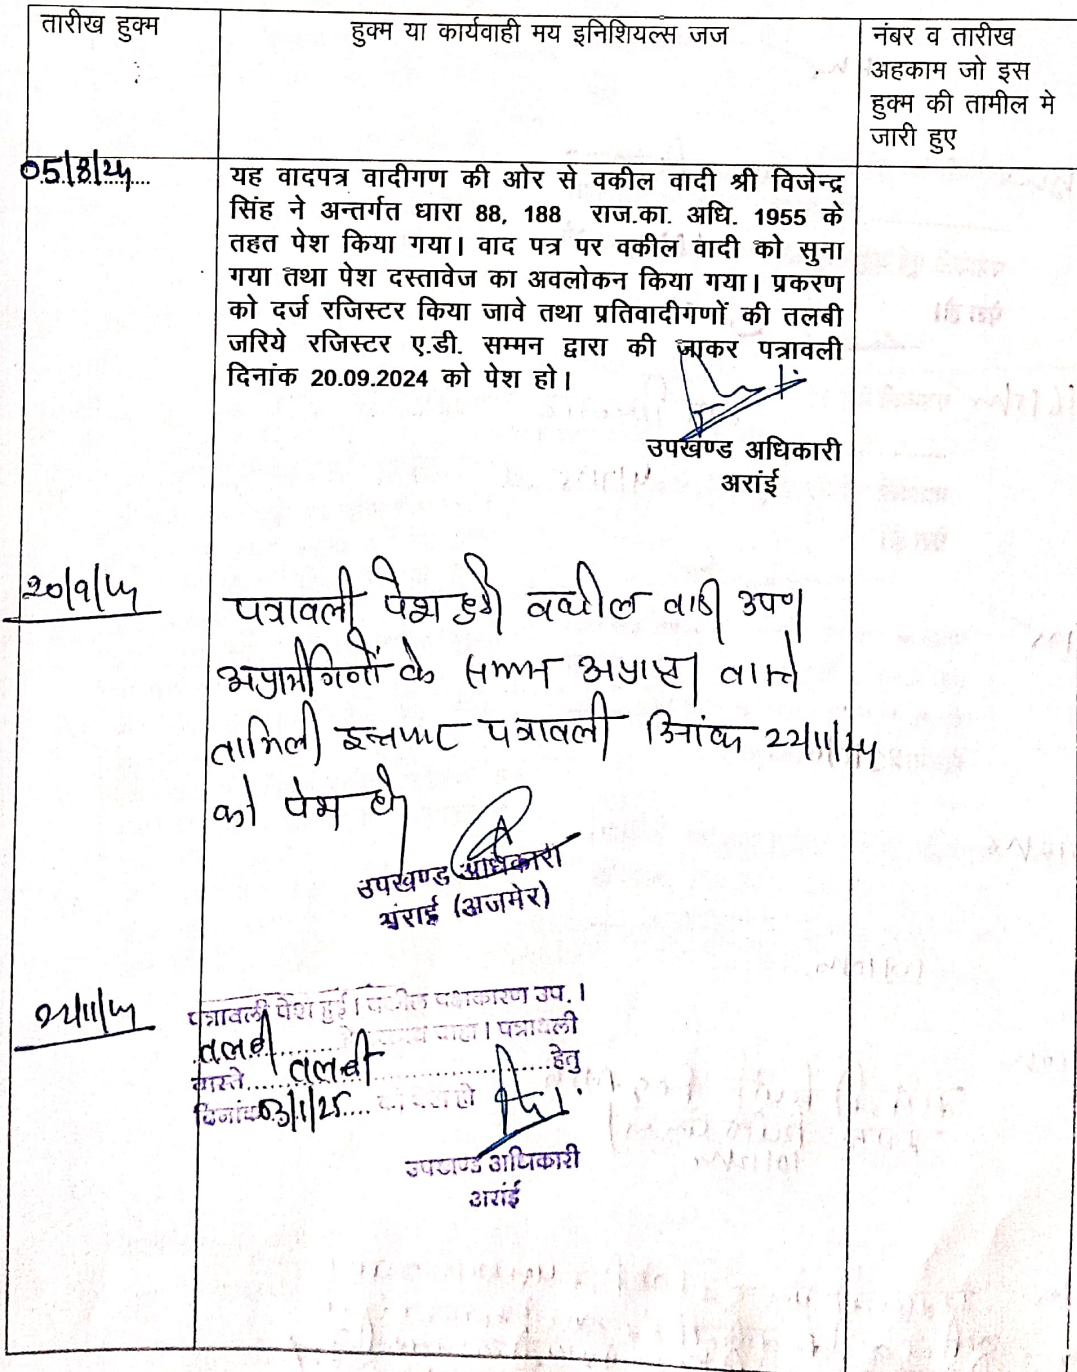 तारीख हुक्म
हुक्म या कार्यवाही मय इनिशियल्स जज
नंबर व तारीख
अहकाम जो इस
हुक्म की तामील मे
जारी हुए
05/8/24
यह वादपत्र वादीगण की ओर से वकील वादी श्री विजेन्द्र
सिंह ने अन्तर्गत धारा 88, 188 राज.का. अधि. 1955 के
तहत पेश किया गया। वाद पत्र पर वकील वादी को सुना
गया तथा पेश दस्तावेज का अवलोकन किया गया। प्रकरण
को दर्ज रजिस्टर किया जावे तथा प्रतिवादीगणों की तलबी
जरिये रजिस्टर ए.डी. सम्मन द्वारा की जाकर पत्रावली
दिनांक 20.09.2024 को पेश हो।
उपखण्ड अधिकारी
अरांई
20/9/24
पत्रावली पेश हुई वकील वादी उप०
के सम्मन अप्राप्त वास्ते
तामिली इन्तजार पत्रावली दिनांक 22/11/24
को पेश हो
उपखण्ड अधिकारी
अंराई (अजमेर)
22/11/24
पत्रावली पेश हुई। वकील पक्षकारण उप.।
तलबी चाहा। पत्रावली
वास्ते तलबी हेतु
दिनांक 03/1/25 को पेश हो
उपखण्ड अधिकारी
अरांई